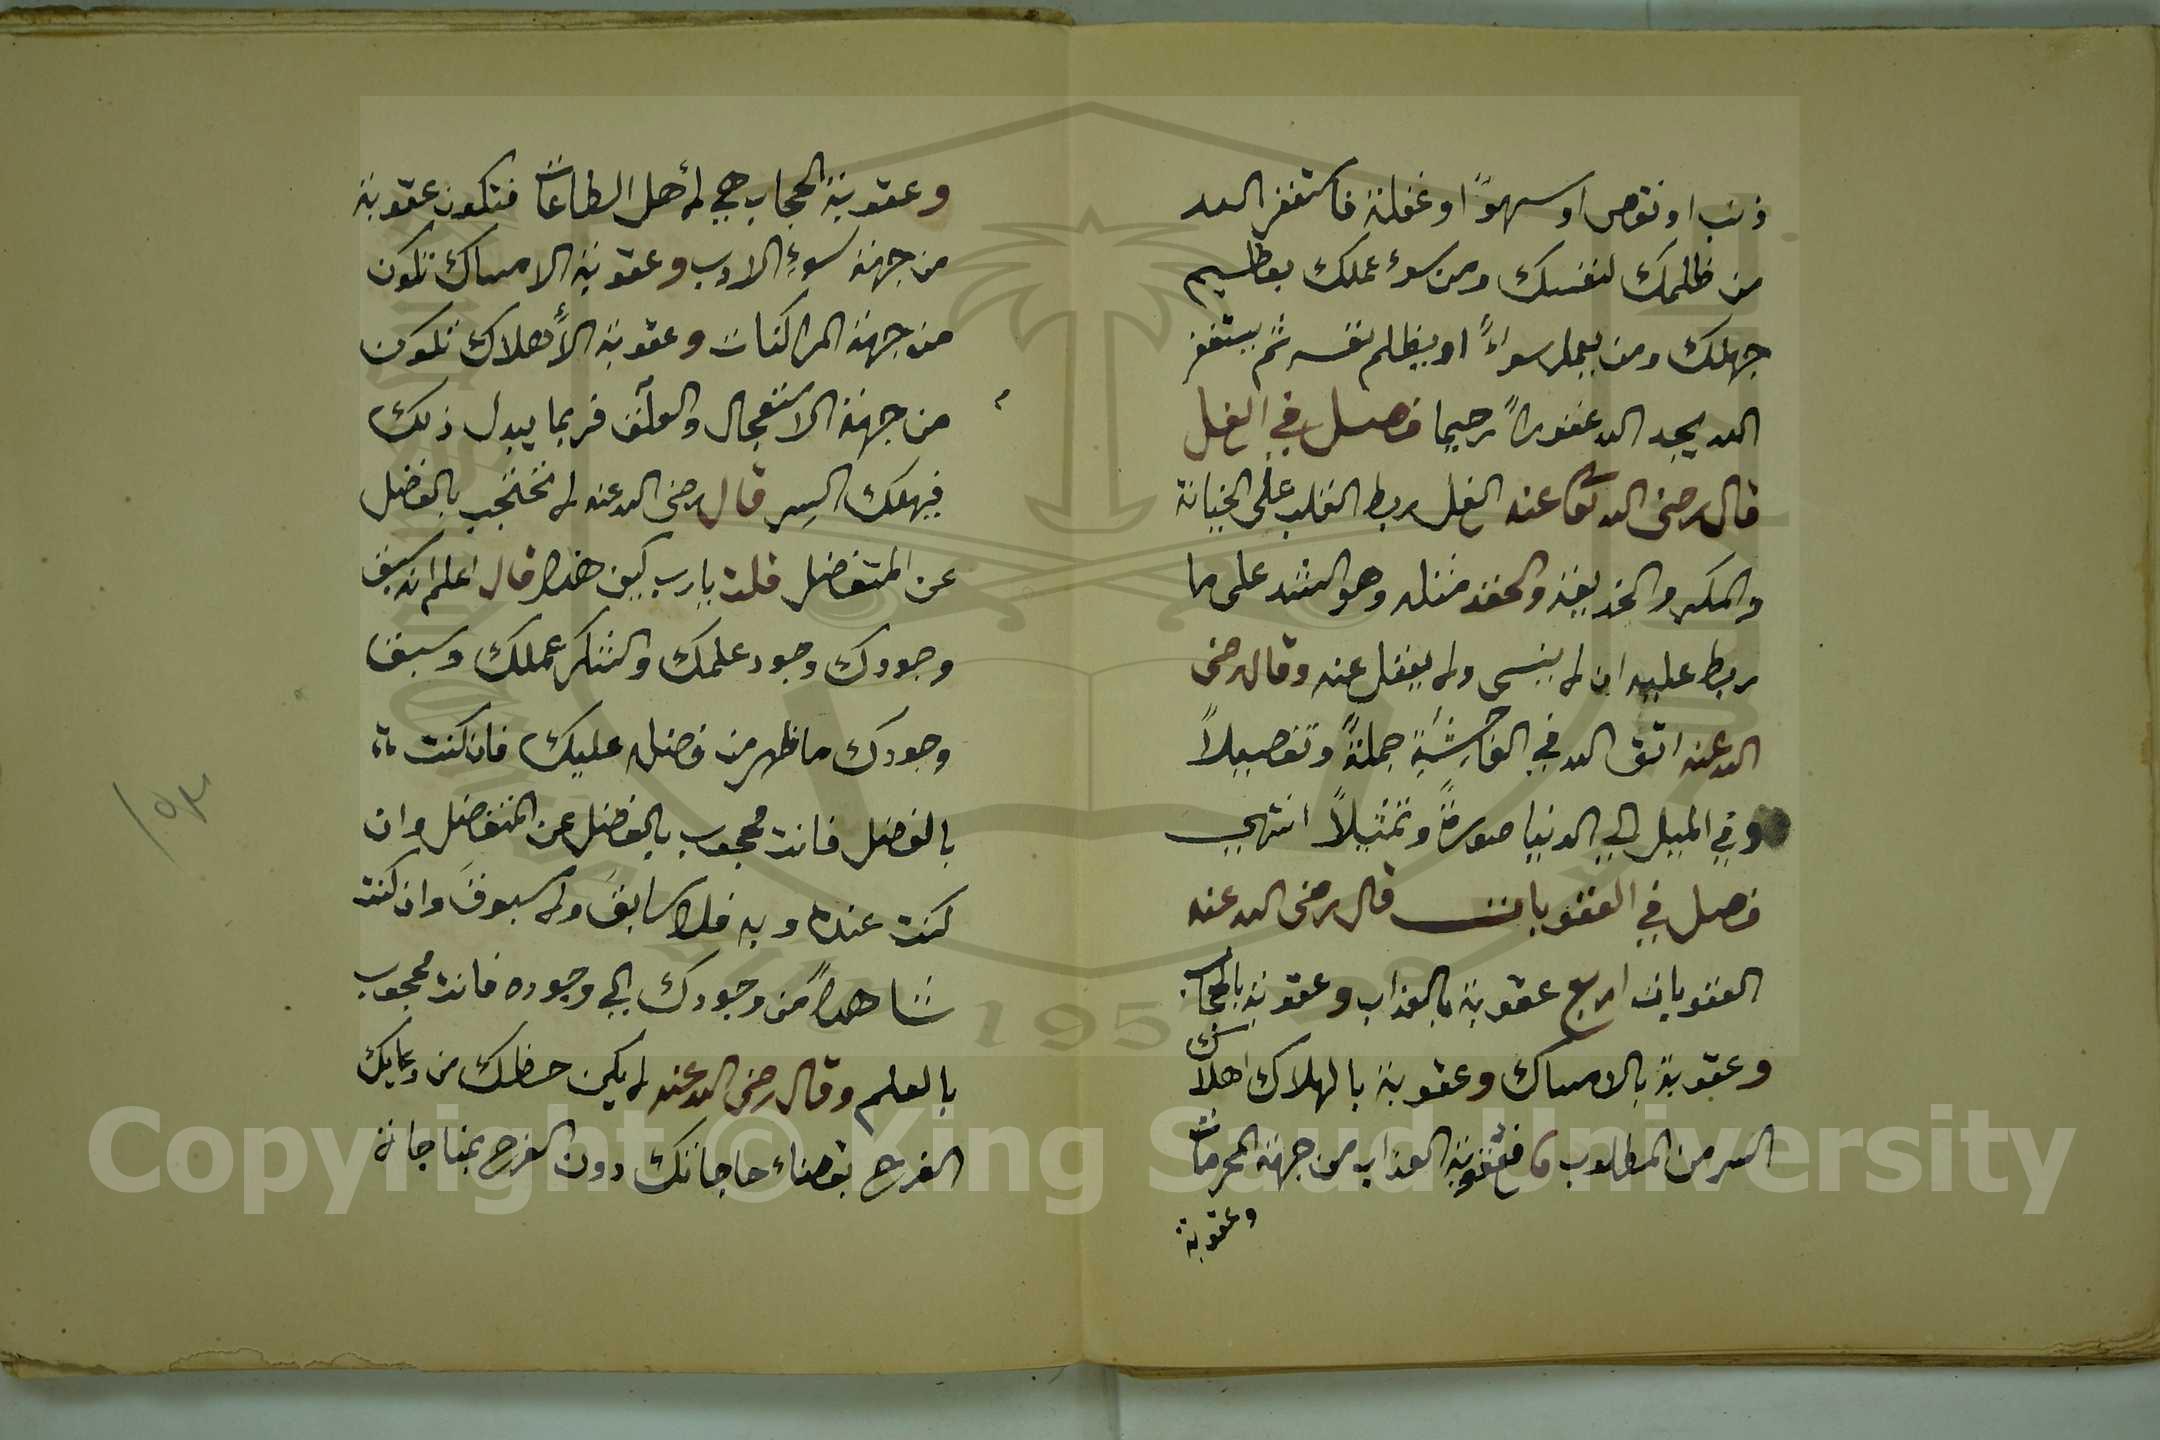 ذنب او نقص او سهوًا او غفلة فاستغفر الله
من ظلمك لنفسك ومن سوء عملك بعظيم
جهلك ومن يعمل سواءً او يظلم نفسه ثم يستغفر
الله يجد الله غفورًا رحيما فصل في الغل
قال رضى الله تعا عنه الغل ربط القلب على الخيانة
والمكر والخديعة والحقد مثله وهو الشد على ما
ربط عليه ان لا ينسى ولا يغفل عنه وقال رضى
الله عنه اتق الله في الفاحشة جملةً وتفصيلاً
وفي الميل الي الدنيا صورةً وتمثيلاً انتهي
فصل في العقوبات قال رضى الله عنه
العقوبات اربع عقوبة بالعذاب وعقوبة بالحجاب
وعقوبة بالامساك وعقوبة بالهلاك اهلاك
السر من المطلوب فعقوبة العذاب من جهة المحرمات
وعقوبة
وعقوبة الحجاب هي لأهل الطاعات فتكون عقوبة
من جهة سوء الادب وعقوبة الامساك تكون
من جهة المراكنات وعقوبة الأهلاك تكون
من جهة الاستعجال والعلق فربما يبدل ذلك
فيهلك السر قال رضى الله عنه لا تحتجب بالفضل
عن المتفضل قلت يارب كيف هذا قال اعلم انه سبق
وجودك وجود علمك والشكر عملك وسبق
وجودك ما ظهر من فضله عليك فان كنت
بالفضل فانت محجوب بالفضل عن المتفضل وان
كنت عنده وبه فلا سابق ولا سبوق وان كنت
شاهدًا من وجودك الي وجوده فانت محجوب
بالعلم وقال رضى الله عنه لا يكن حظك من دعايك
الفرح بقضاء حاجاتك دون الفرح بمناجاة
١٥٢
Copyright © King Saud University
195